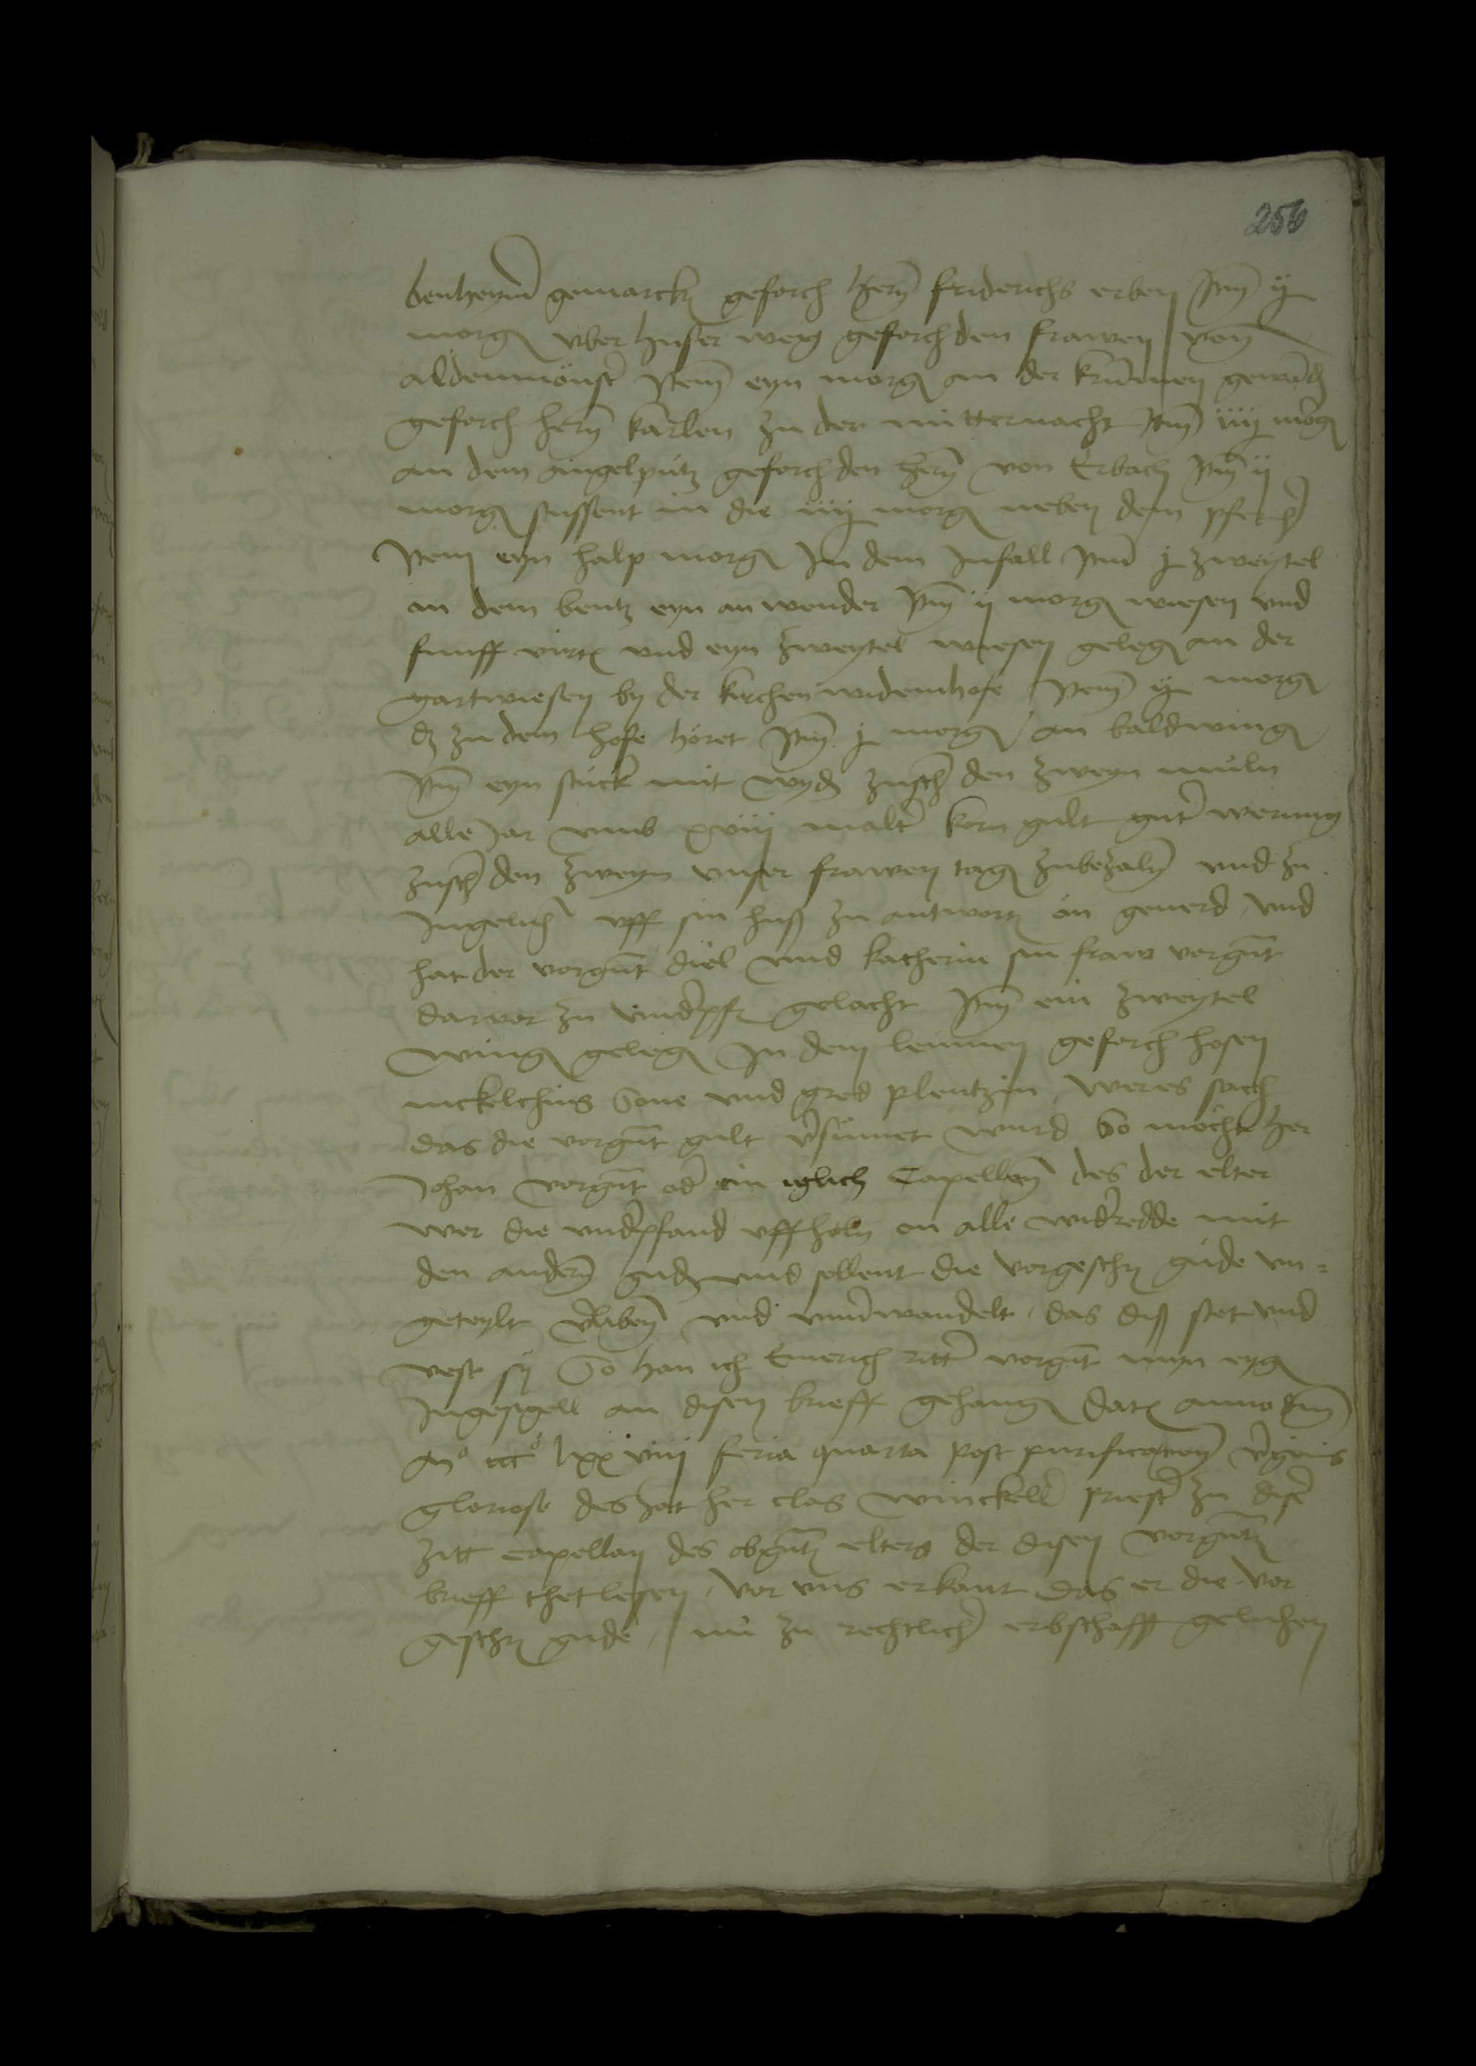 256
benheym̄ gemarck geforch hern̄ friderichs erben Itm̄ ij
morgē uber huser weg geforch den frawen von
aldenmönst' Item̄ eyn morgē an der krūmen gewand
geforch hern̄ karlen zu der mitternacht Itm̄ iiij morgē
an dem angelputz geforch den hern̄ von Erbach Itm̄ ij
morgē stossent in die iiij morgē neben dem
Item eyn halp morgē In dem Infall Itm̄ j zweytel
an dem bentz eyn an wender Itm̄ ij morgē wiesen und
funff virt' und eyn zweytel wiesen gelegē an der
gartwiesen by der kirchen widemhofe Item̄ ij morgē
dz zu dem hofe höret Itm̄ j morgē an baldwingē
Itm̄ eyn stuck mit wydē zusch' den zweyn muln
alle Jar umb xviij malt' korn gult gut' werung
zusch' den zweyn unser frawen tagē zubezaln̄ und zu
Ingelnh' uff sin huß zu antwort' ön geuerd und
hat der vorgn̄t diel und katherin sin fraw vorgn̄t
darvor zu und'pf' gelacht Itm̄ ein zweytel
wingē gelegē In dem leimen geforch hosen
nickelchins Sone und gred plentzin, wer es sach
das die vorgn̄t gult v'sumet wurd So möcht her
Johan vorgn̄t od' ein iglich Capellan̄ des der elter
wer die und'pfand uffholn on alle wid'redde mit
den andern̄ gudē und sollent die vorgeschr' gude un=
geteylt v'liben̄ und unu'wandelt, das diß stet und
vest sij So han ich Emerich ritt' vorgn̄t myn eygē
Ingesigell an disen brieff gehangē dat' anno dm̄
mº cccº lxxviiij feria quarta post purificacōn̄ v'gīnis
gloriose des hat her clas winckell' priest' zu diß'
zitt capellan des obgn̄t' elters der disen vorgn̄t'
brieff thet lesen, vor uns erkant das er die vor
geschr' gude, nū zu rechtlich' erbschafft geluhen